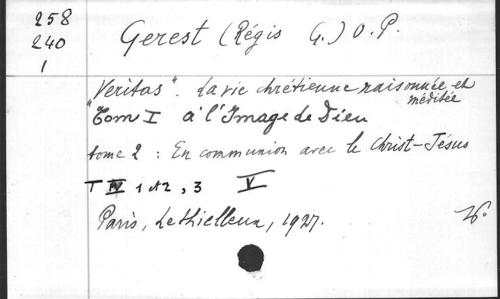 258
240
1
Gerest (Régis G.) O.P.
"Veritas". La vie chrétienne raisonnée et
méditée
Tom I à l'Image de Dieu
tome 2 : En communion avec le Christ-Jésus
T IV 1 et 2, 3 V
Paris, Lethielleux, 1927.